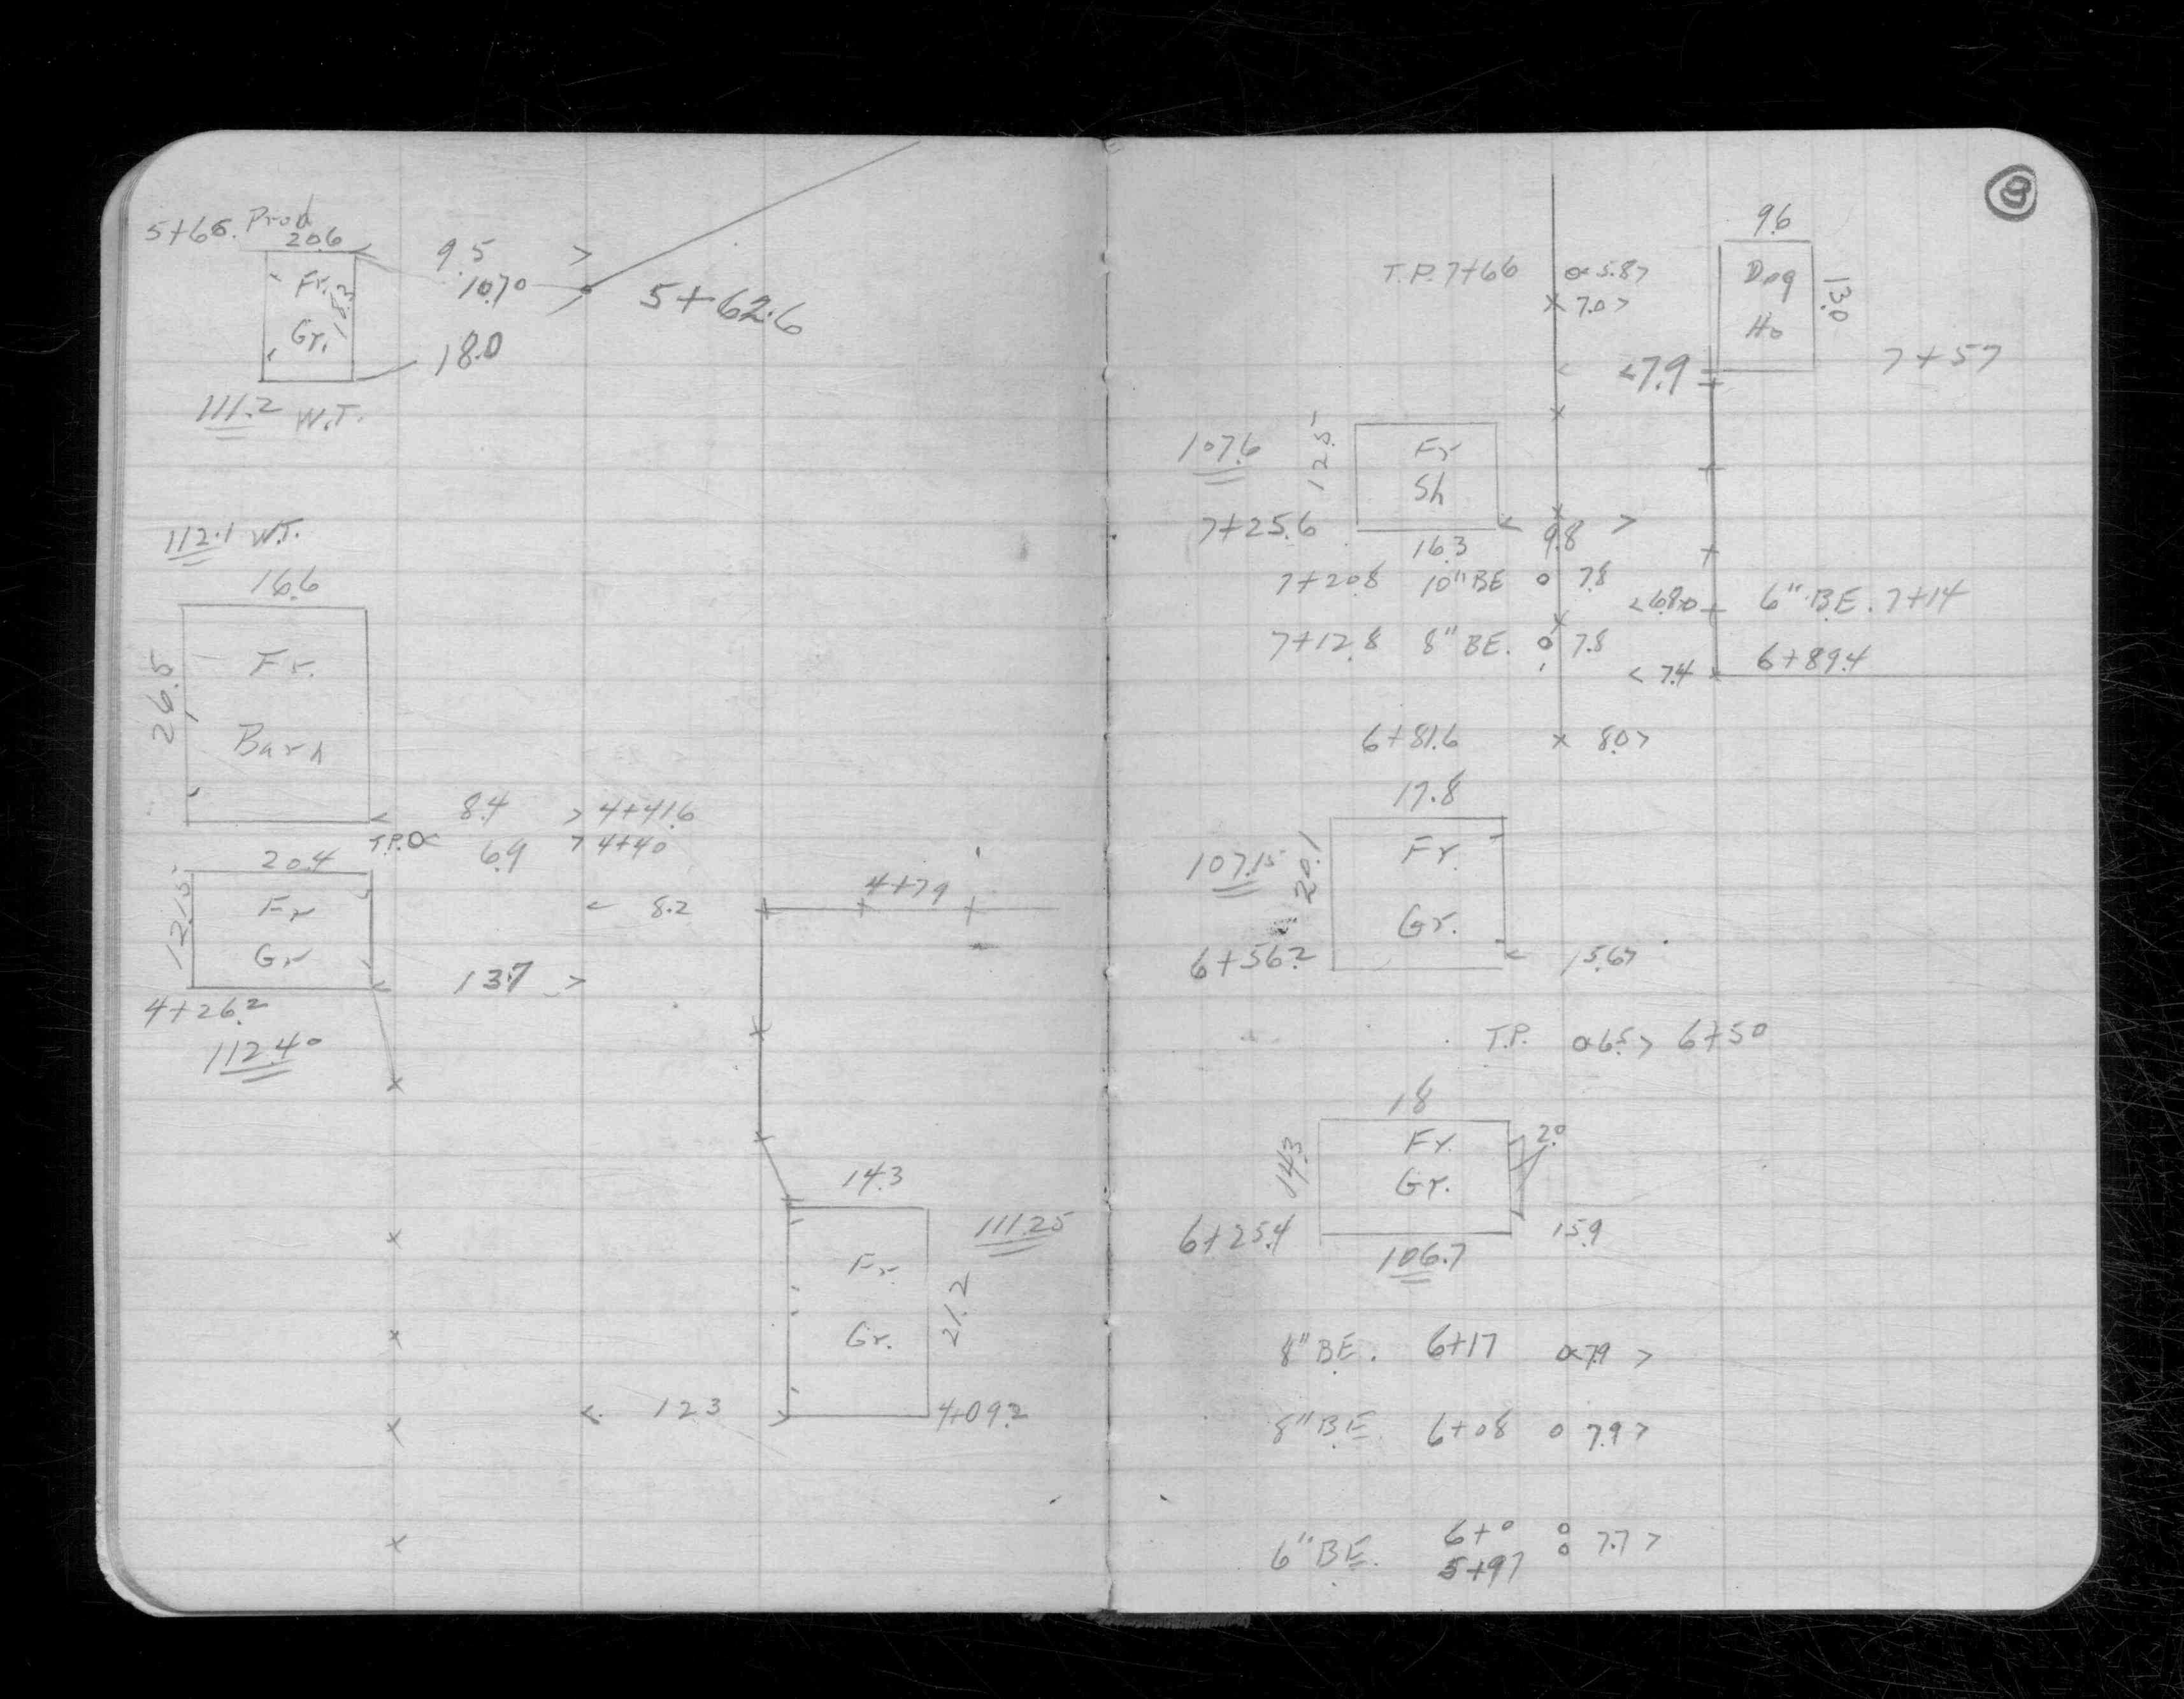 5+66. Prod
20.6
9.5 >
Fr.
18.3
10.70
5+62.6
Gr.
18.0
111.2 W.T.
112.1 W.T.
16.6
26.5
Fr.
Barn
< 8.4 > 4+41.6
T.P. 6.9 > 4+40
20.4
12.5
Fr
Gr
< 8.2
4+79
< 13.7 >
4+26.2
112.40
14.3
111.25
Fr.
21.2
Gr.
< 12.3 >
4+09.2
8
9.6
T.P. 7+66 5.8>
Dog
13.0
x 7.0>
Ho
<7.9
7+57
107.6
12.5
Fr
Sh
7+25.6
< 9.8 >
16.3
7+20.8 10" BE o 7.8
<6.80 6" BE. 7+14
7+12.8 8" BE. o 7.8
< 7.4 x 6+89.4
6+81.6 x 8.0>
17.8
107.15
20.1
Fr.
Gr.
6+56.2
< 15.6>
T.P. 6.5> 6+50
18
14.3
Fr.
2.0
Gr.
6+25.4
15.9
106.7
8" BE. 6+17 7.9 >
8" BE. 6+08 o 7.9>
6" BE. 6+0 o 7.7>
5+97 o